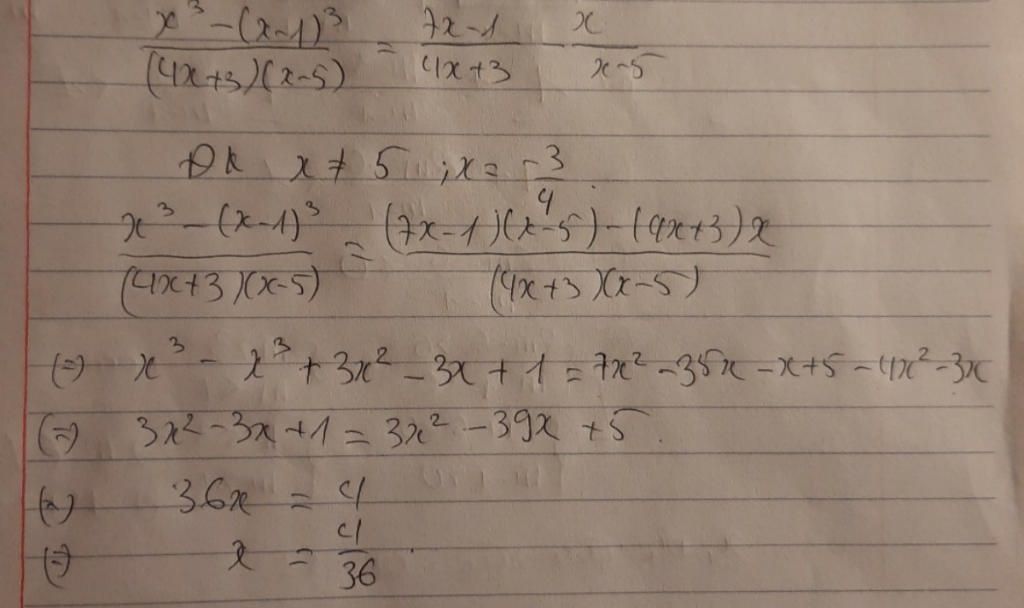 x³ - (x-1)³ / (4x+3)(x-5) = 7x-1 / 4x+3 - x / x-5
ĐK x ≠ 5 ; x = -3/4.
x³ - (x-1)³ / (4x+3)(x-5) = (7x-1)(x-5) - (4x+3)x / (4x+3)(x-5)
(=) x³ - x³ + 3x² - 3x + 1 = 7x² - 35x - x + 5 - 4x² - 3x
(=) 3x² - 3x + 1 = 3x² - 39x + 5.
(=) 36x = 4
(=) x = 4/36.